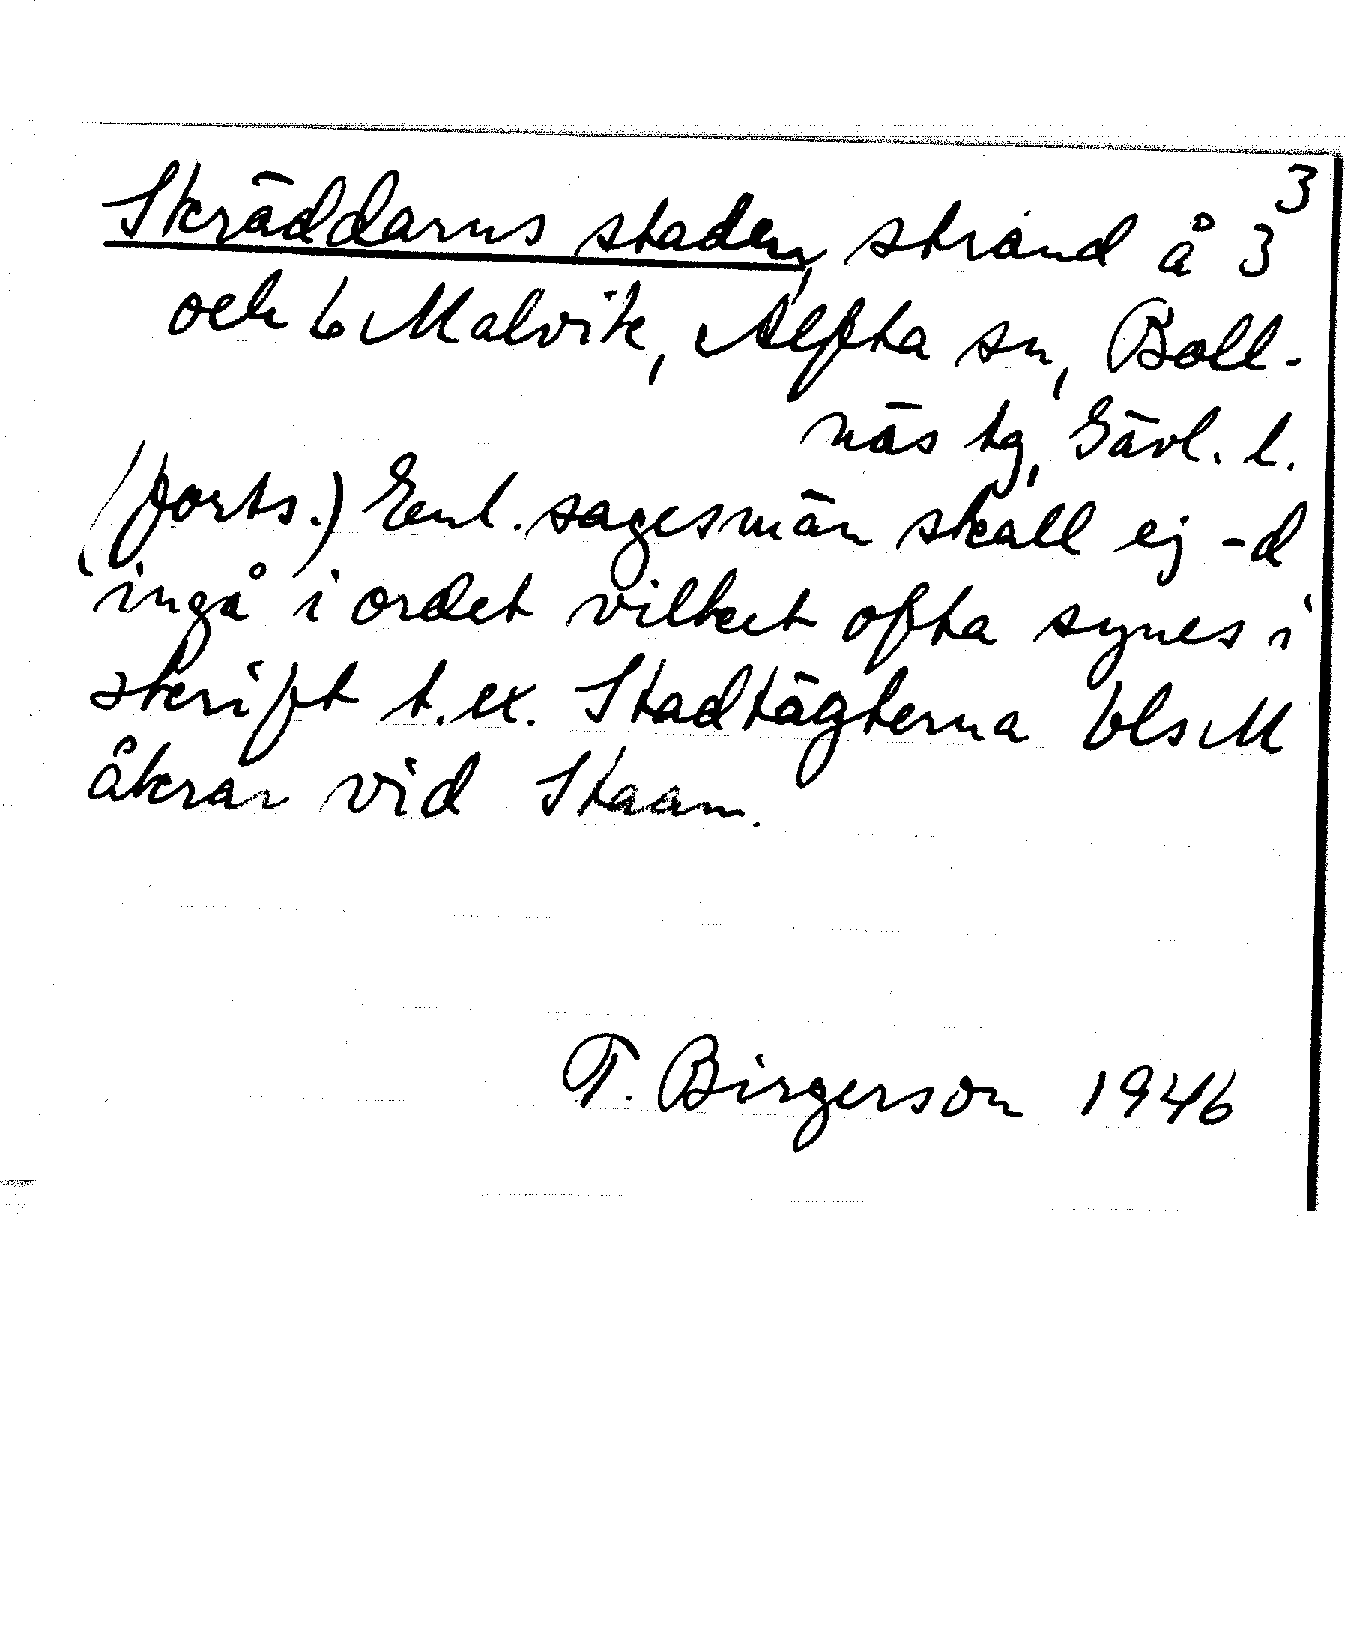 3
Skräddarns staden, strand å 3
och 6 Malvik, Alfta sn, Boll-
näs tg, Gävl. l.
(forts.) Enl. sagesmän skall ej -d
ingå i ordet vilket ofta synes i
skrift t.ex. Stadtägterna blsM
åkrar vid Staam.
T. Birgerson 1946